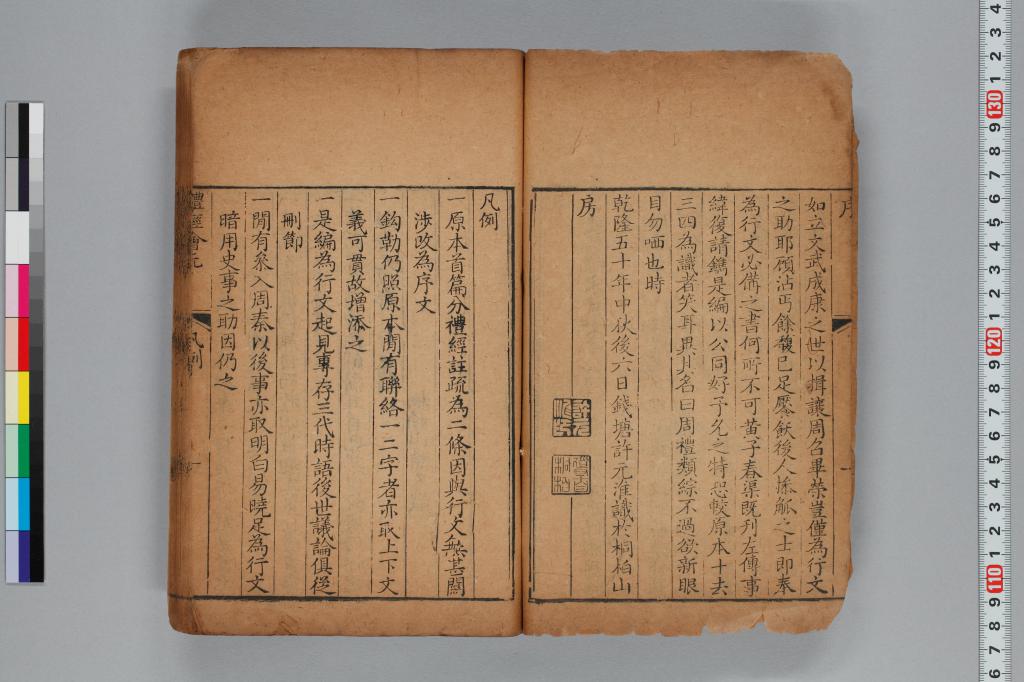 序
如立文武成康之世以揖讓周召畢榮豈僅為行文
之助耶顧沾丐餘馥已足饜飫後人操觚之士即奉
為行文必備之書何所不可黃子春渠既刊左傳事
緯復請鐫是編以公同好予久之特恐較原本十去
三四為識者笑耳異其名曰周禮類綜不過欲新眼
目勿哂也時
乾隆五十年中秋後六日錢塘許元淮識於桐柏山
房
凡例
一原本首篇分禮經註疏為二條因與行文無甚關
涉改為序文
一鈎勒仍照原本間有聯絡一二字者亦取上下文
義可貫故增添之
一是編為行文起見專存三代時語後世議論俱從
刪節
一間有參入周秦以後事亦取明白易曉足為行文
暗用史事之助因仍之
禮經會元
凡例
一